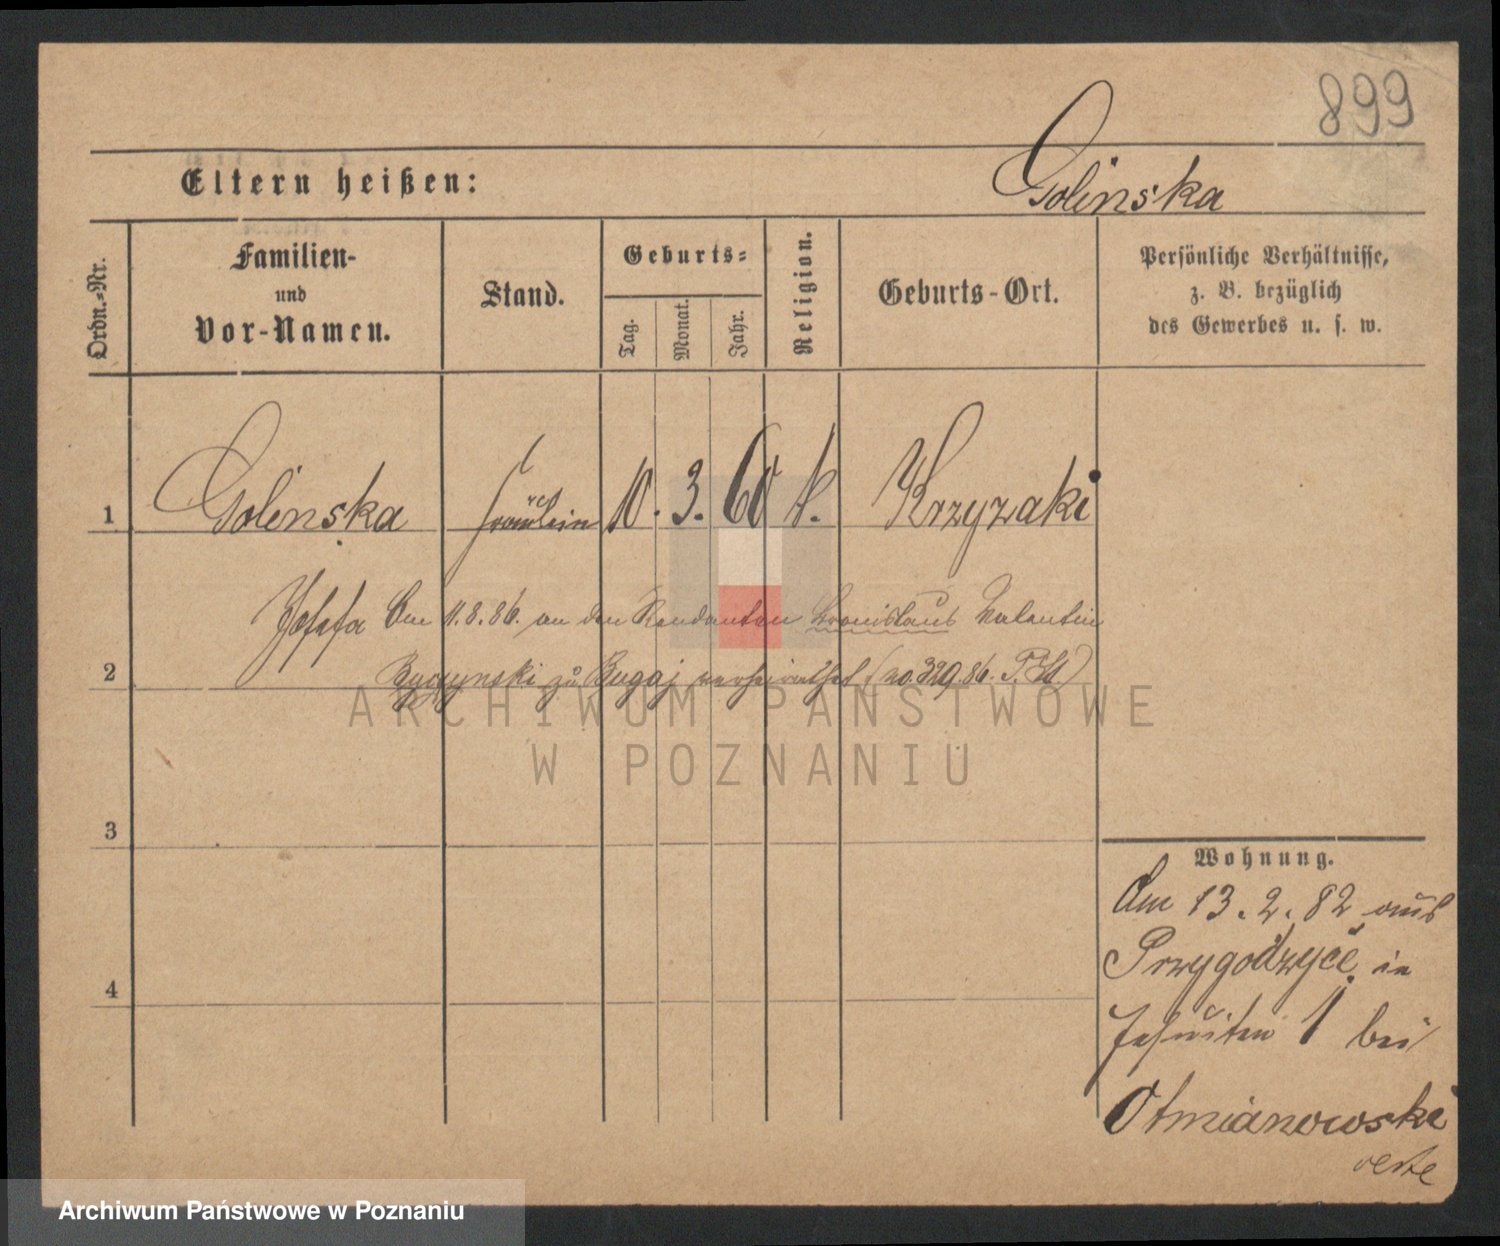 899
Eltern heißen:
Golinska
Ordn.=Nr.
Familien-
und
Vor-Namen.
Stand.
Geburts=
Tag.
Monat.
Jahr.
Religion.
Geburts-Ort.
Persönliche Verhältnisse,
z. B. bezüglich
des Gewerbes u. s. w.
1
Golinska Fräulein 10. 3. 60 k. Krzyzaki
Josefa Am 11.8.86. an den Rendanten Bronislaus Valentin
2
zu Bugaj verheirathet (no. 329.86. P. II)
ARCHIWUM PAŃSTWOWE
W POZNANIU
3
Wohnung.
Am 13.2.82 aus
Przygodzyce in
4
Jesuiten 1 bei
Otmianowski
verte
Archiwum Państwowe w Poznaniu